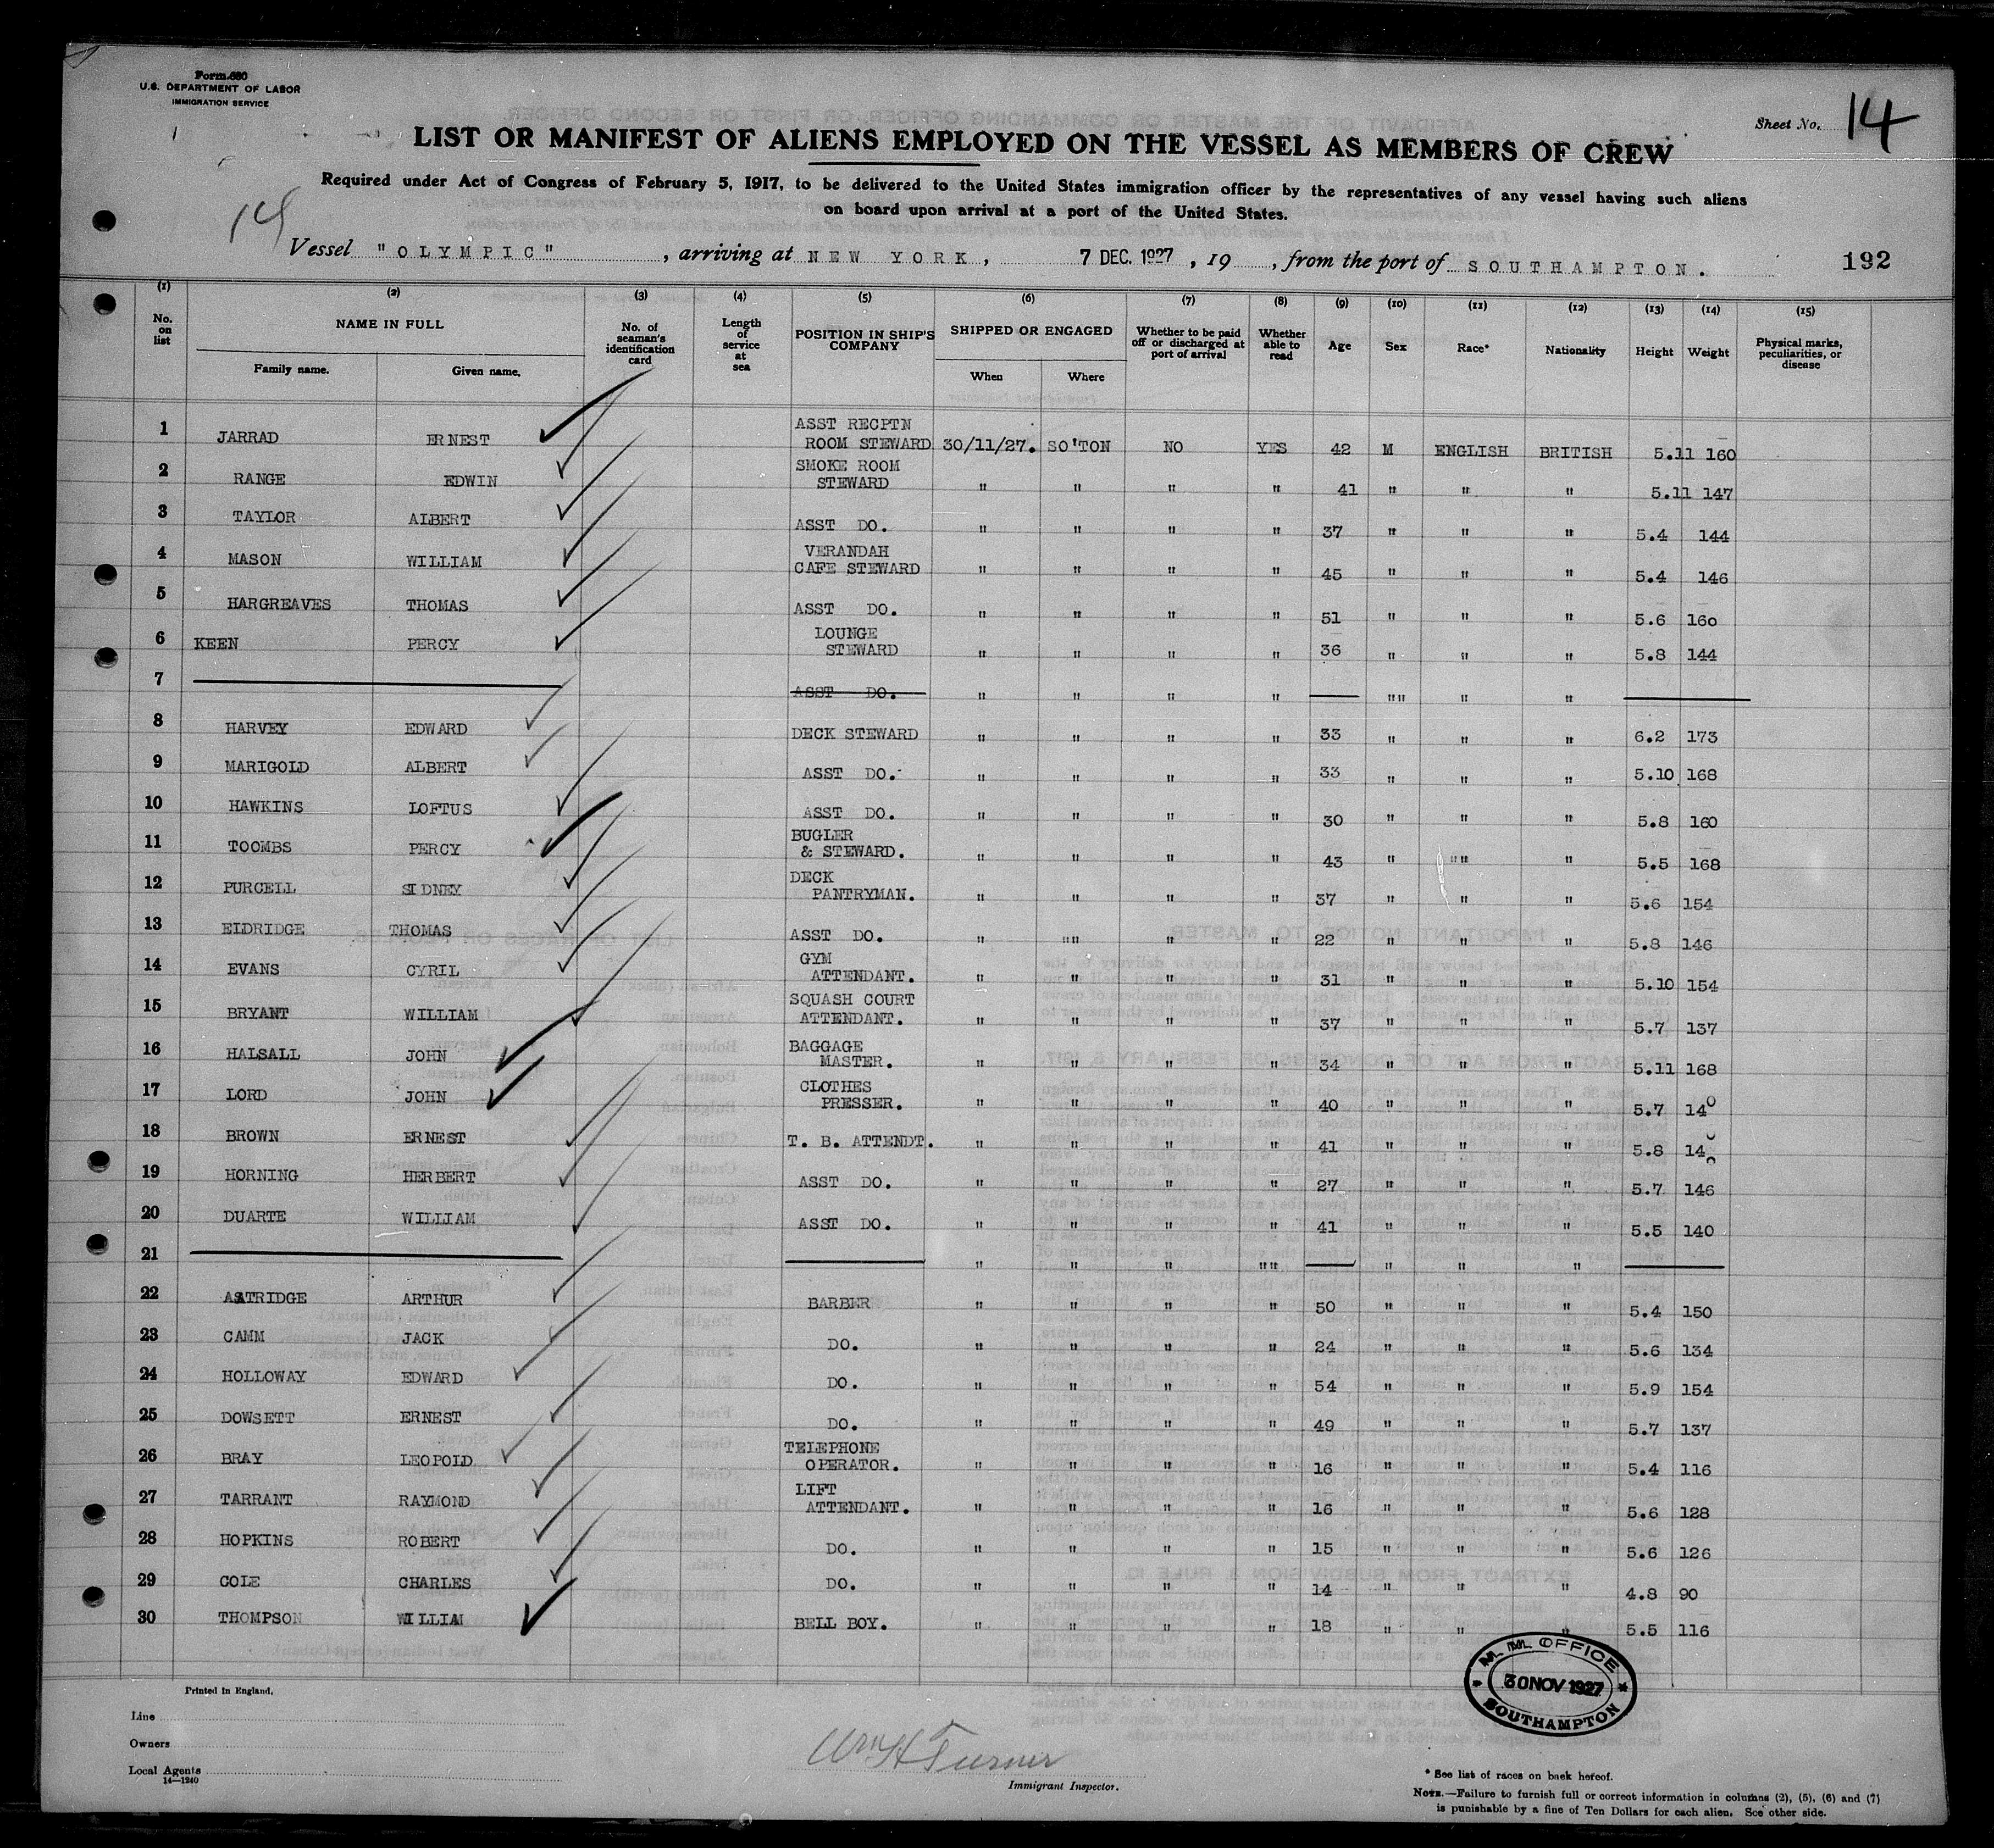 Form 680
U.S. DEPARTMENT OF LABOR
IMMIGRATION SERVICE
Sheet No. 14
LIST OR MANIFEST OF ALIENS EMPLOYED ON THE VESSEL AS MEMBERS OF CREW
Required under Act of Congress of February 5, 1917, to be delivered to the United States immigration officer by the representatives of any vessel having such aliens
on board upon arrival at a port of the United States.
14
Vessel "OLYMPIC", arriving at NEW YORK, 7 DEC. 1927, 19 , from the port of SOUTHAMPTON. 192
(1) (2) (3) (4) (5) (6) (7) (8) (9) (10) (11) (12) (13) (14) (15)
No. on list NAME IN FULL Family name. Given name. No. of seaman's identification card Length of service at sea POSITION IN SHIP'S COMPANY SHIPPED OR ENGAGED When Where Whether to be paid off or discharged at port of arrival Whether able to read Age Sex Race* Nationality Height Weight Physical marks, peculiarities, or disease
1 JARRAD ERNEST ASST RECPTN ROOM STEWARD 30/11/27. SO'TON NO YES 42 M ENGLISH BRITISH 5.11 160
2 RANGE EDWIN SMOKE ROOM STEWARD " " " " 41 " " " 5.11 147
3 TAYLOR ALBERT ASST DO. " " " " 37 " " " 5.4 144
4 MASON WILLIAM VERANDAH CAFE STEWARD " " " " 45 " " " 5.4 146
5 HARGREAVES THOMAS ASST DO. " " " " 51 " " " 5.6 160
6 KEEN PERCY LOUNGE STEWARD " " " " 36 " " " 5.8 144
7 ASST DO. " " " " "" " "
8 HARVEY EDWARD DECK STEWARD " " " " 33 " " " 6.2 173
9 MARIGOLD ALBERT ASST DO. " " " " 33 " " " 5.10 168
10 HAWKINS LOFTUS ASST DO. " " " " 30 " " " 5.8 160
11 TOOMBS PERCY BUGLER & STEWARD. " " " " 43 " "" " 5.5 168
12 PURCELL SIDNEY DECK PANTRYMAN. " " " " 37 " " " 5.6 154
13 ELDRIDGE THOMAS ASST DO. " "" " " 22 " " " 5.8 146
14 EVANS CYRIL GYM ATTENDANT. " " " " 31 " " " 5.10 154
15 BRYANT WILLIAM SQUASH COURT ATTENDANT. " " " " 37 " " " 5.7 137
16 HALSALL JOHN BAGGAGE MASTER. " " " " 34 " " " 5.11 168
17 LORD JOHN CLOTHES PRESSER. " " " " 40 " " " 5.7 140
18 BROWN ERNEST T. B. ATTENDT. " " " " 41 " " " 5.8 140
19 HORNING HERBERT ASST DO. " " " " 27 " " " 5.7 146
20 DUARTE WILLIAM ASST DO. " " " " 41 " " " 5.5 140
21 " " " "" " " "
22 ASTRIDGE ARTHUR BARBER " " " " 50 " " " 5.4 150
23 CAMM JACK DO. " " " " 24 " " " 5.6 134
24 HOLLOWAY EDWARD DO. " " " " 54 " " " 5.9 154
25 DOWSETT ERNEST DO. " " " " 49 " " " 5.7 137
26 BRAY LEOPOLD TELEPHONE OPERATOR. " " " " 16 " " " 5.4 116
27 TARRANT RAYMOND LIFT ATTENDANT. " " " " 16 " " " 5.6 128
28 HOPKINS ROBERT DO. " " " " 15 " " " 5.6 126
29 COLE CHARLES DO. " " " " 14 " " " 4.8 90
30 THOMPSON WILLIAM BELL BOY. " " " " 18 " " " 5.5 116
M. M. OFFICE
30 NOV 1927
SOUTHAMPTON
Printed in England.
Line
Owners
Local Agents
14—1240
Wm H Turner
Immigrant Inspector.
* See list of races on back hereof.
NOTE.—Failure to furnish full or correct information in columns (2), (5), (6) and (7)
is punishable by a fine of Ten Dollars for each alien. See other side.